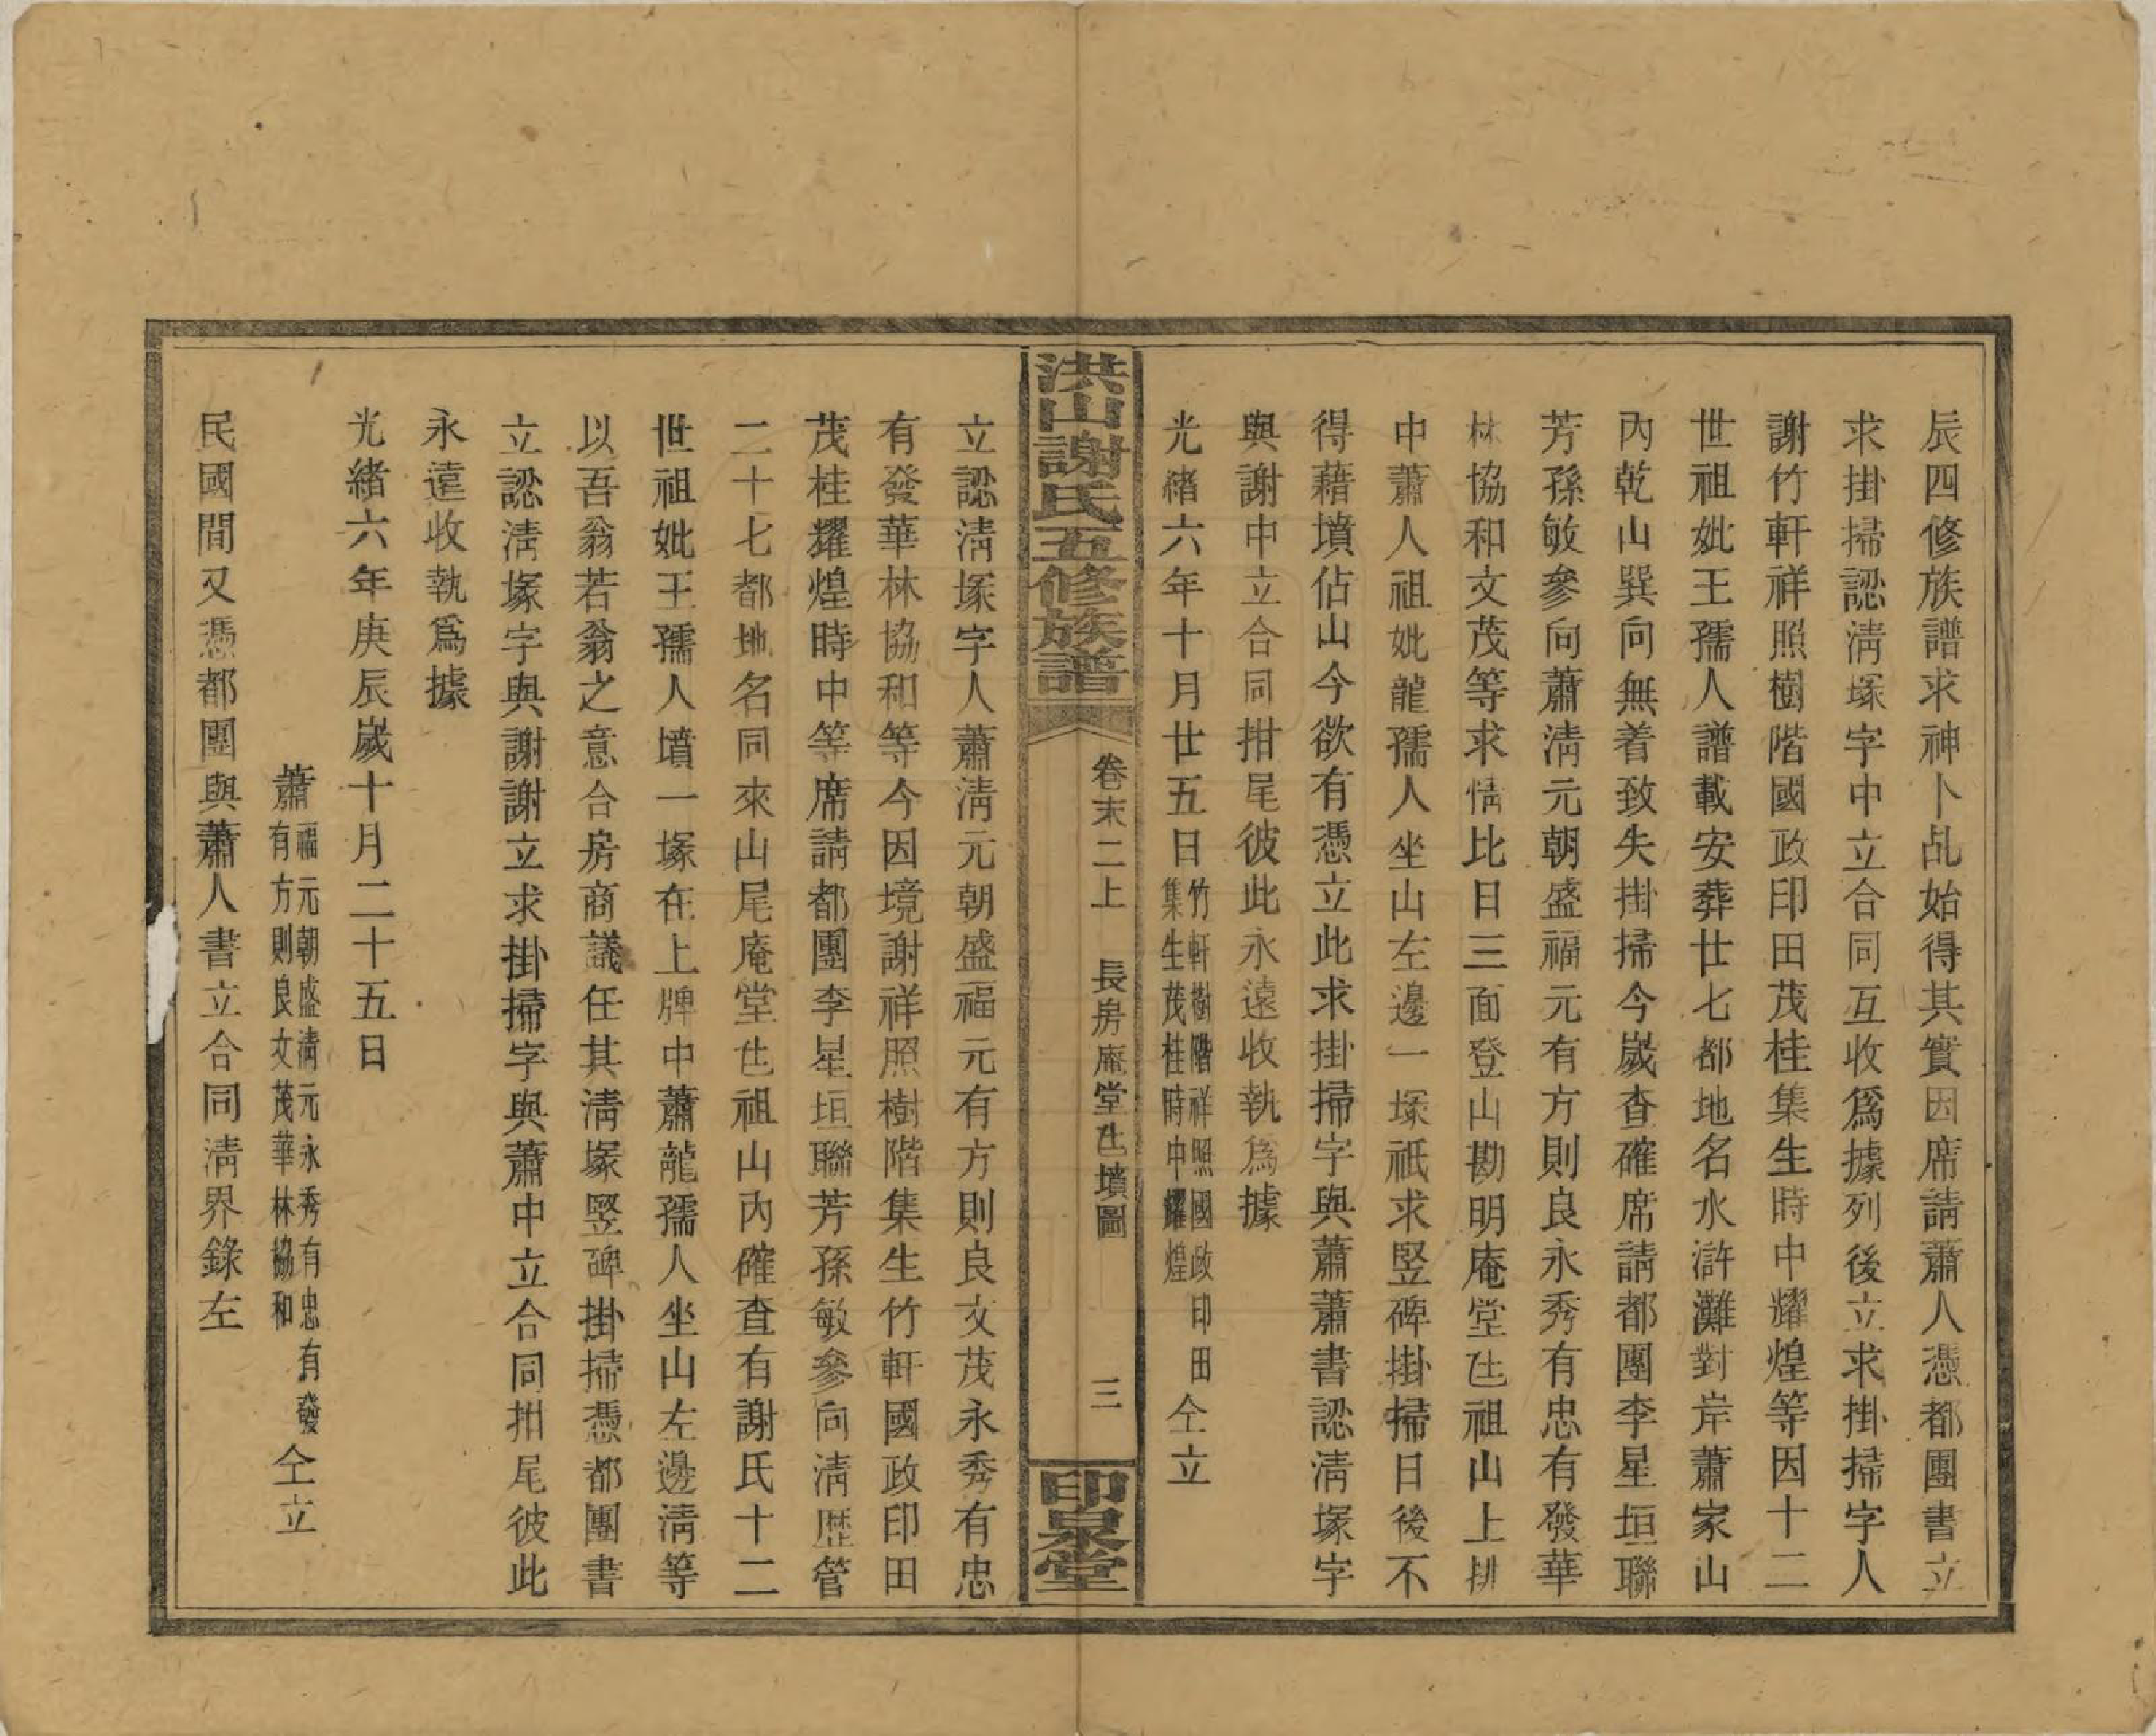 辰四修族譜求神卜乩始得其實因席請蕭人憑都團書立
求掛掃認淸塚字中立合同互收爲據列後立求掛掃字人
謝竹軒祥照樹階國政印田茂桂集生時中耀煌等因十二
世祖妣王孺人譜載安葬廿七都地名水滸灘對岸蕭家山
內乾山巽向無着致失掛掃今嵗查確席請都團李星垣聯
芳孫敏參向蕭淸元朝盛福元有方則良永秀有忠有發華
林協和文茂等求情比日三面登山勘明庵堂㐌祖山上排
中蕭人祖妣龍孺人坐山左邊一塚祇求竪碑掛掃日後不
得藉墳佔山今欲有憑立此求掛掃字與蕭蕭書認淸塚字
與謝中立合同拑尾彼此永遠收執爲據
光緖六年十月廿五日
竹軒樹階祥照國政印田
集生茂桂時中耀煌
仝立
洪山謝氏五修族譜
卷末二上 長房庵堂㐌墳圖 三
印泉堂
立認淸塚字人蕭淸元朝盛福元有方則良文茂永秀有忠
有發華林協和等今因境謝祥照樹階集生竹軒國政印田
茂桂耀煌時中等席請都團李星垣聯芳孫敏參向淸歷管
二十七都地名同來山尾庵堂㐌祖山內確查有謝氏十二
世祖妣王孺人墳一塚在上牌中蕭龍孺人坐山左邊淸等
以吾翁若翁之意合房商議任其淸塚竪碑掛掃憑都團書
立認淸塚字與謝謝立求掛掃字與蕭中立合同拑尾彼此
永遠收執爲據
光緖六年庚辰嵗十月二十五日
蕭
福元朝盛淸元永秀有忠有發
有方則良文茂華林協和
仝立
民國間又憑都團與蕭人書立合同淸界錄左